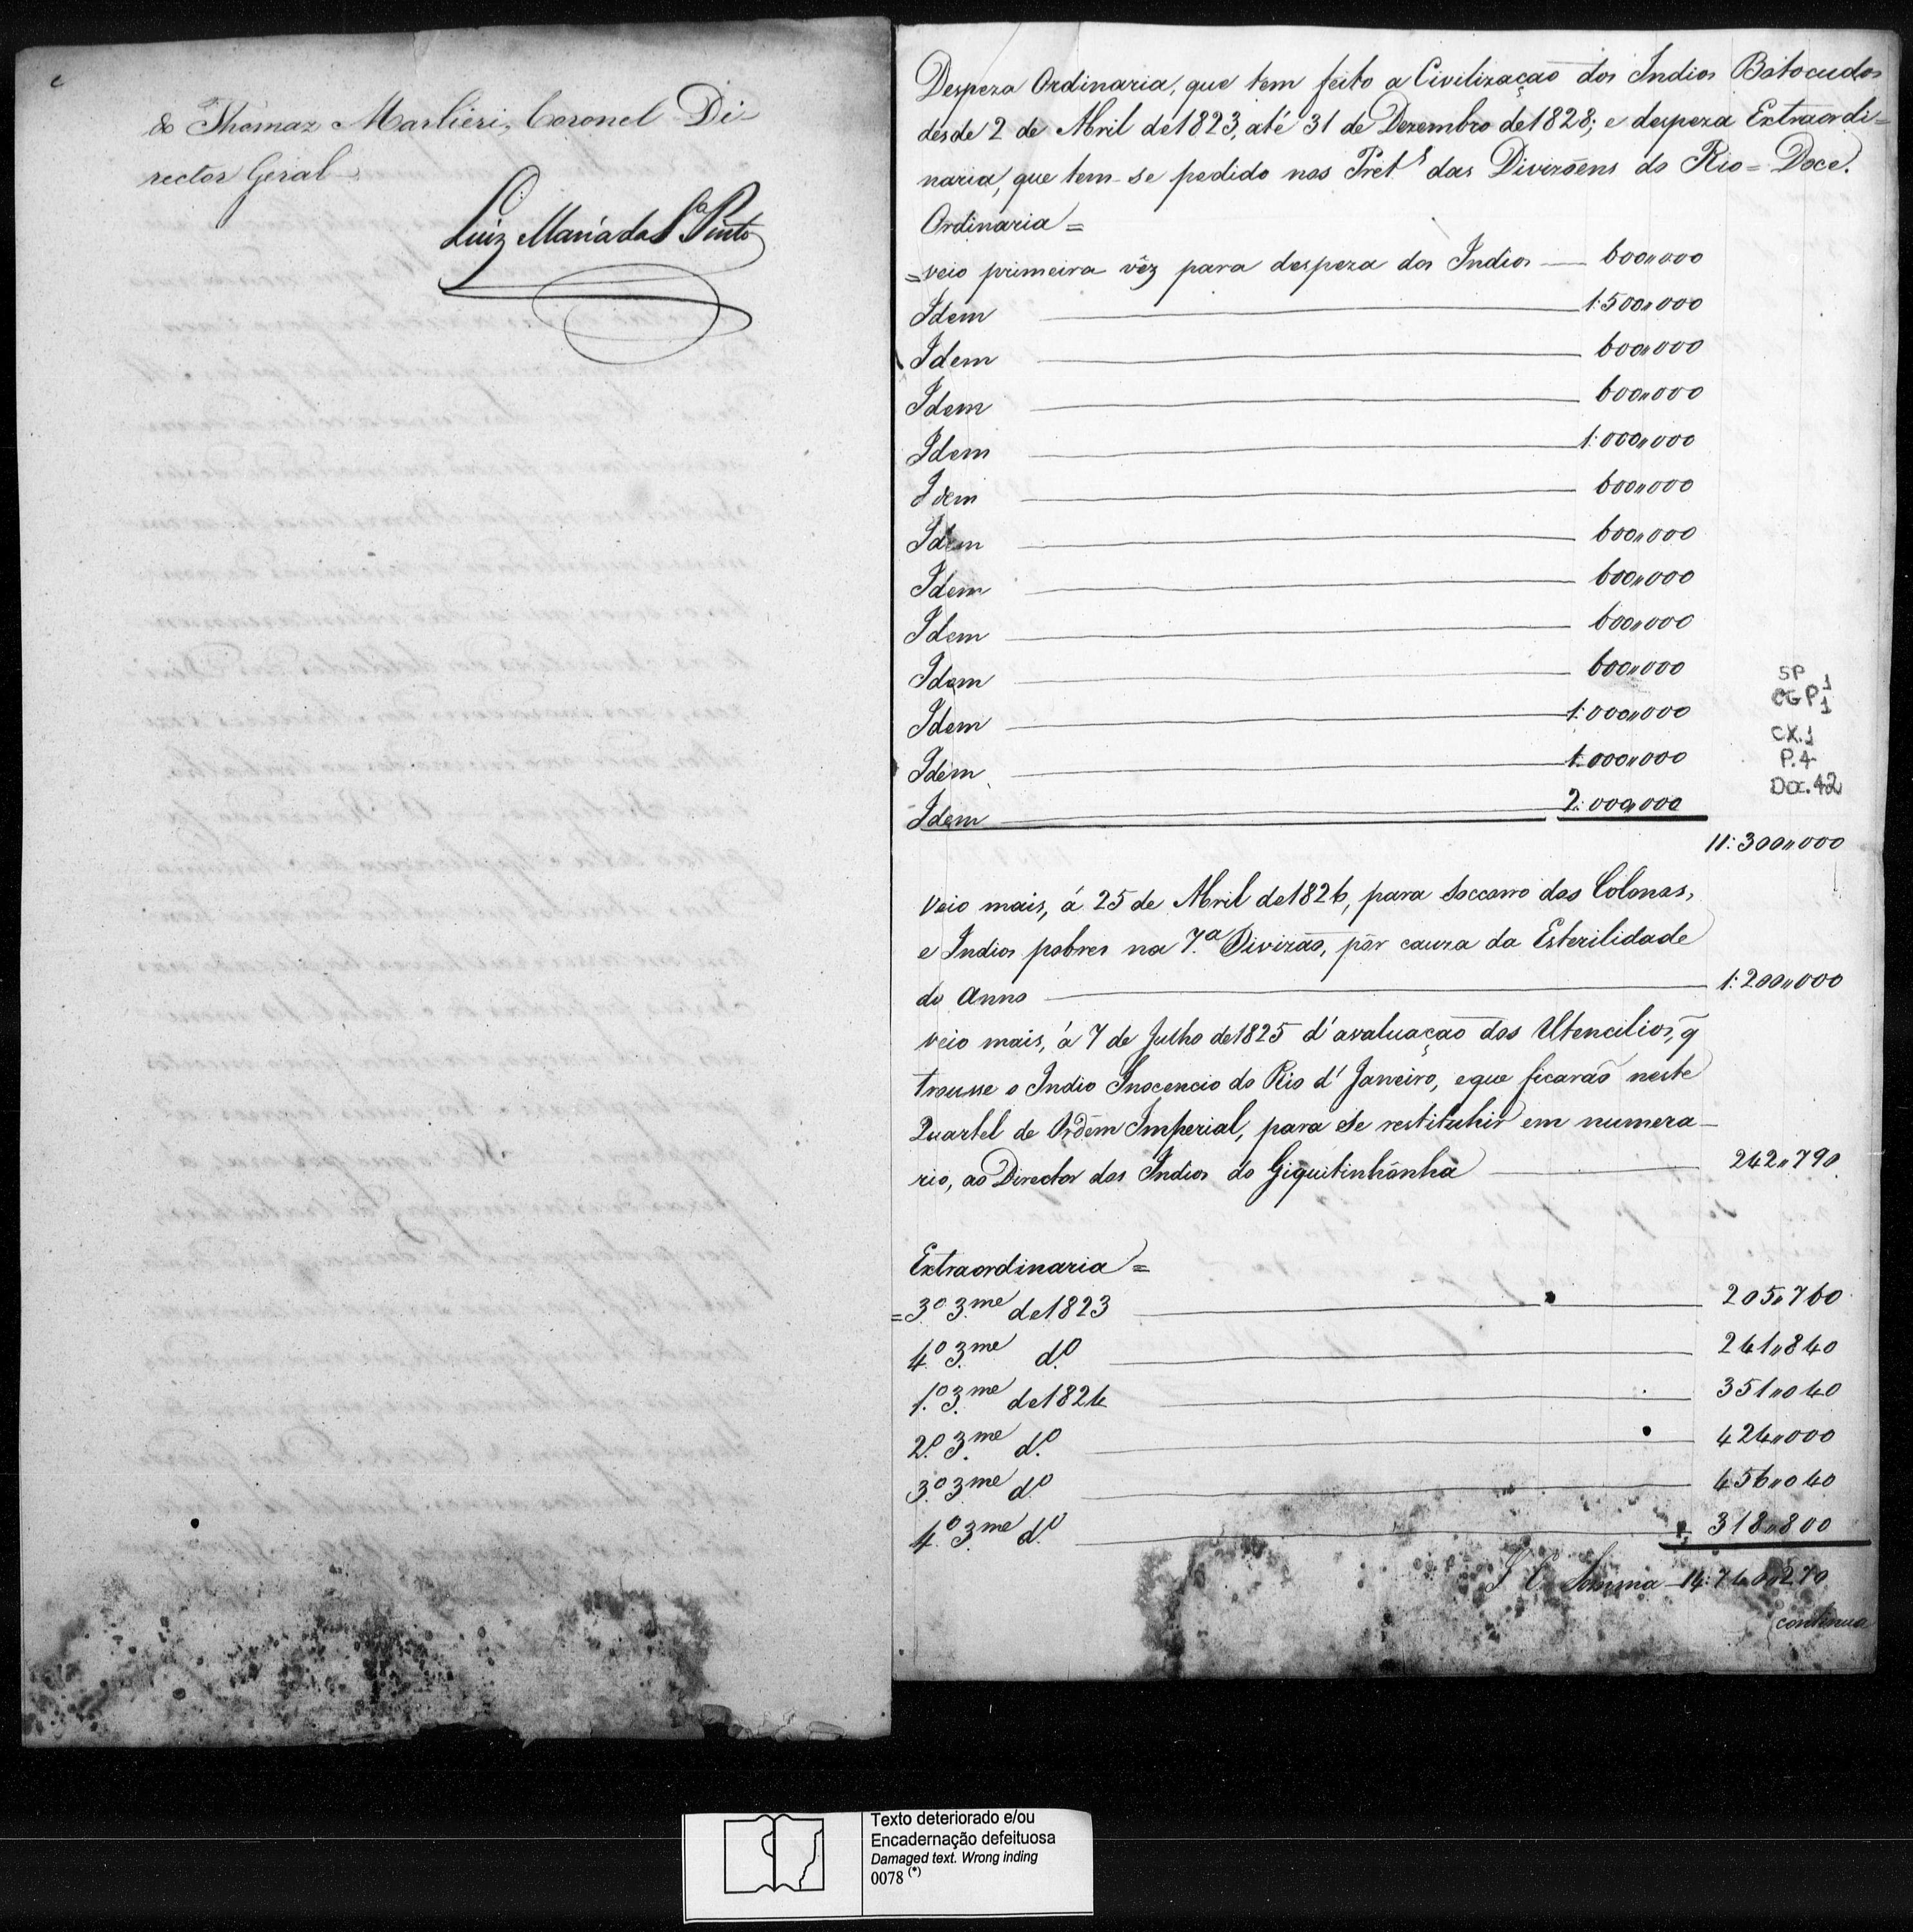 do Thomaz Marlieri, Coronel Di-
rector Geral
Luiz Maria da S.ª Pinto
Despeza Ordinaria, que tem feito a Civilização dos Indios Botocudos
desde 2 de Abril de 1823, até 31 de Dezembro de 1828; e despeza Extraordi=
naria, que tem-se pedido nos Pret.s das Divizoens do Rio=Doce.
Ordinaria=
=veio primeira vêz para despeza dos Indios — 600,,000
Idem — 1:500,,000
Idem — 600,,000
Idem — 600,,000
Idem — 1:000,,000
Idem — 600,,000
Idem — 600,,000
Idem — 600,,000
Idem — 600,,000
Idem — 600,,000
Idem — 1:000,,000
Idem — 1:000,,000
Idem — 2:000,,000
11:300,,000
SP 1
CGP 1
CX.1
P.4
Doc.42
Veio mais, á 25 de Abril de 1826, para Soccorro dos Colonos,
e Indios pobres na 7.ª Divizão, pôr cauza da Esterilidade
do Anno — 1:200,,000
veio mais, á 7 de Julho de 1825 d'avaluação dos Utencilios, q̃
trousse o Indio Inocencio do Rio d'Janeiro, e que ficarão neste
Quartel de Ordem Imperial, para se restituhir em numera-
rio, ao Director dos Indios do Giquitinhônha — 242,,790
Extraordinaria=
=3.º 3.me de 1823 — 205,,760
4.º 3.me d.º — 241,,840
1.º 3.me de 1824 — 351,,040
2.º 3.me d.º — 424,,000
3.º 3.me d.º — 456,,040
4.º 3.me d.º — 318,,800
S. E. Somma — 14:740,,270
continua
Texto deteriorado e/ou
Encadernação defeituosa
Damaged text. Wrong inding
0078 (*)